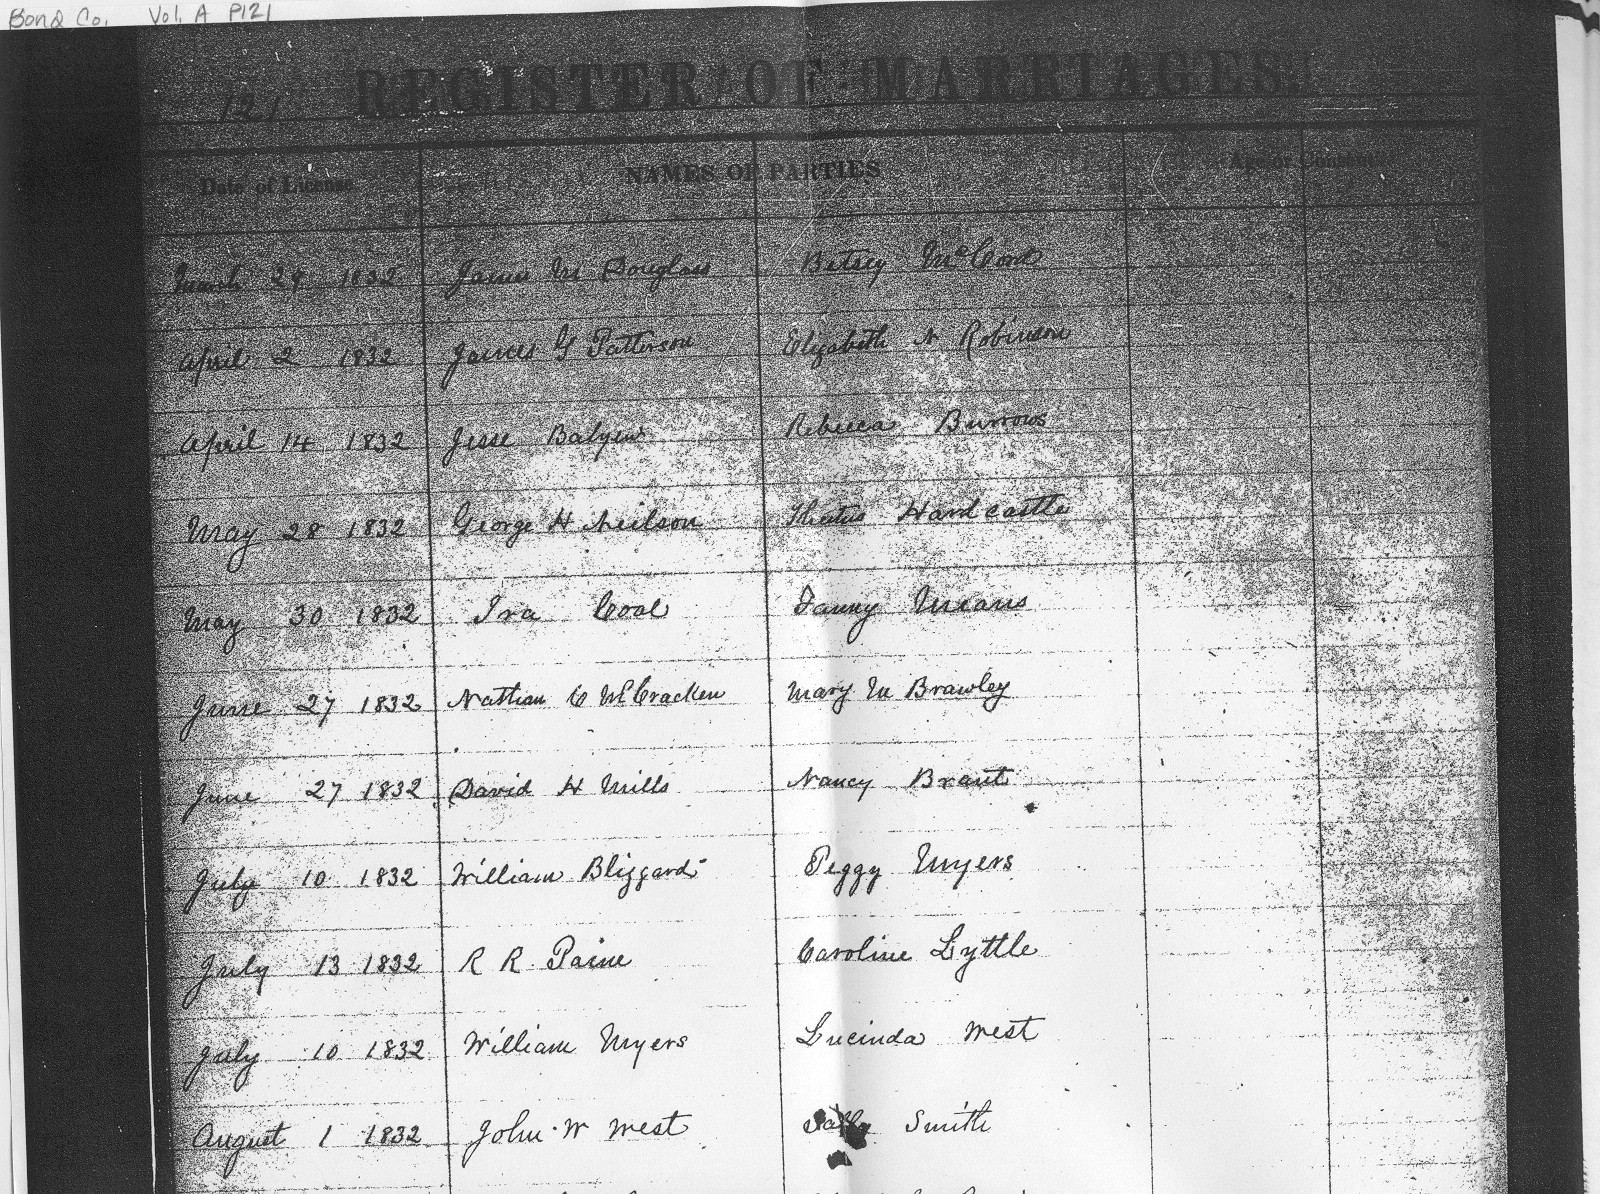 Bond Co. Vol. A P121
121 REGISTER OF MARRIAGES.
Date of License NAMES OF PARTIES Age or Consent
March 29 1832 James M Douglass Betsey McCord
April 2 1832 James G Patterson Elizabeth N Robinson
April 14 1832 Jesse Balyew Rebecca Burrows
May 28 1832 George H Neilson Hardcastle
May 30 1832 Ira Cool Fanny Means
June 27 1832 Nathan C McCracken Mary M Brawley
June 27 1832 David H Mills Nancy Brant
July 10 1832 William Blizzard Peggy Myers
July 13 1832 R R Paine Caroline Lyttle
July 10 1832 William Myers Lucinda West
August 1 1832 John W West Sally Smith